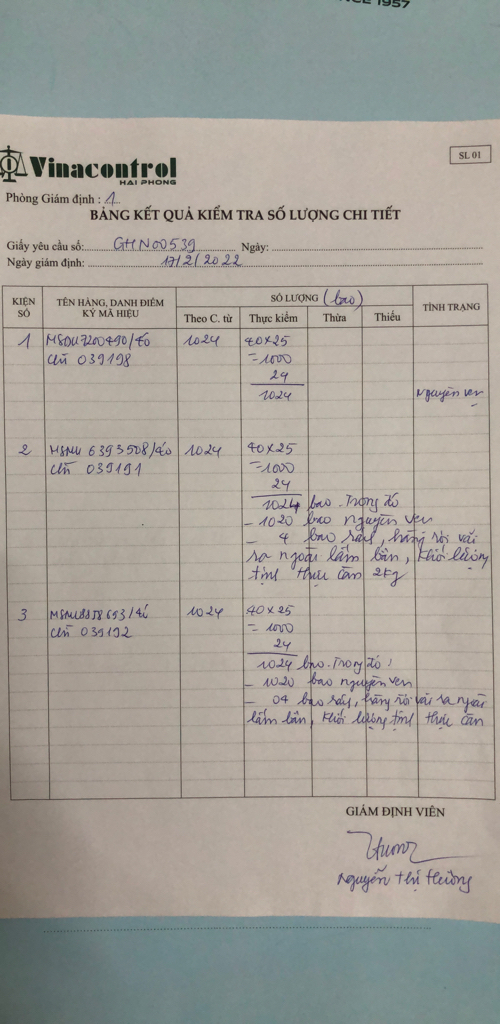 SINCE 1957
Vinacontrol
HAI PHONG
SL 01
Phòng Giám định : 1
BẢNG KẾT QUẢ KIỂM TRA SỐ LƯỢNG CHI TIẾT
Giấy yêu cầu số: GHN00539 Ngày:
Ngày giám định: 17/2/2022
KIỆN SỐ
TÊN HÀNG, DANH ĐIỂM KÝ MÃ HIỆU
SỐ LƯỢNG (bao)
Theo C. từ Thực kiểm Thừa Thiếu
TÌNH TRẠNG
1 MSDU7200490/40 1024 40x25
chì 039198 =1000
24
1024 Nguyên vẹn
2 MSMU 6393508/40 1024 40x25
chì 039191 =1000
24
1024 bao. Trong đó
- 1020 bao nguyên vẹn
- 4 bao rách, hàng rơi vãi
ra ngoài lấm bẩn, khối lượng
tịnh thực cân 2kg
3 1024 40x25
chì 039192 = 1000
24
1024 bao. Trong đó:
- 1020 bao nguyên vẹn
- 04 bao rách, hàng rơi vãi ra ngoài
lấm bẩn, khối lượng tịnh thực cân
GIÁM ĐỊNH VIÊN
Nguyễn Thị Hường